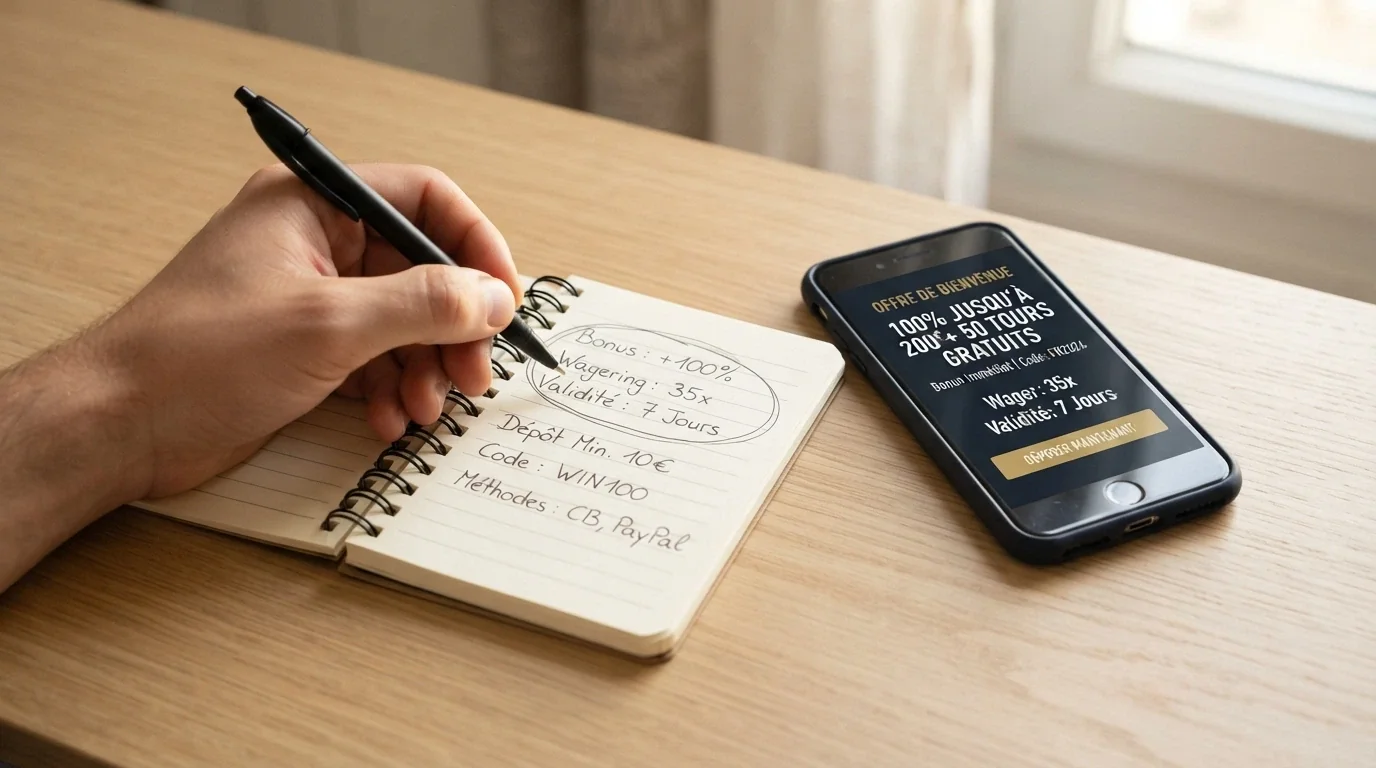 Bonus : +100%
Wagering : 35x
Validité : 7 Jours
Dépôt Min. 10€
Code : WIN100
Méthodes : CB, PayPal
OFFRE DE BIENVENUE
100% JUSQU'À
200€ + 50 TOURS
GRATUITS
Bonus | Code:
Wager: 35x
Validité: 7 Jours
DÉPOSER MAINTENANT